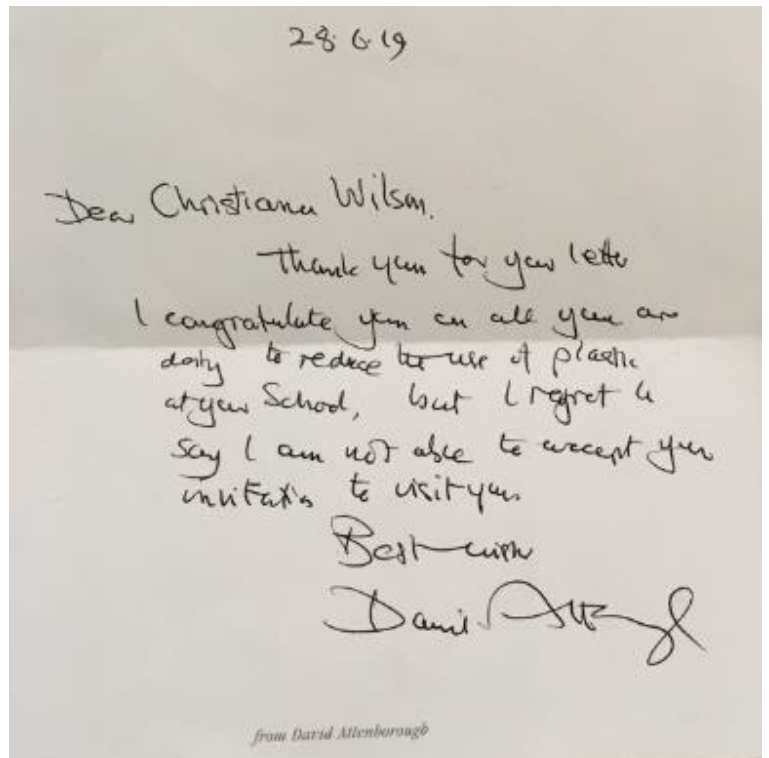 28.6.19
Dear Christiana Wilson.
Thank you for your letter
I congratulate you on all you are
doing to reduce the use of plastic
at your School, but I regret to
say I am not able to accept your
invitation to visit you
Best wishes
David Attenborough
from David Attenborough